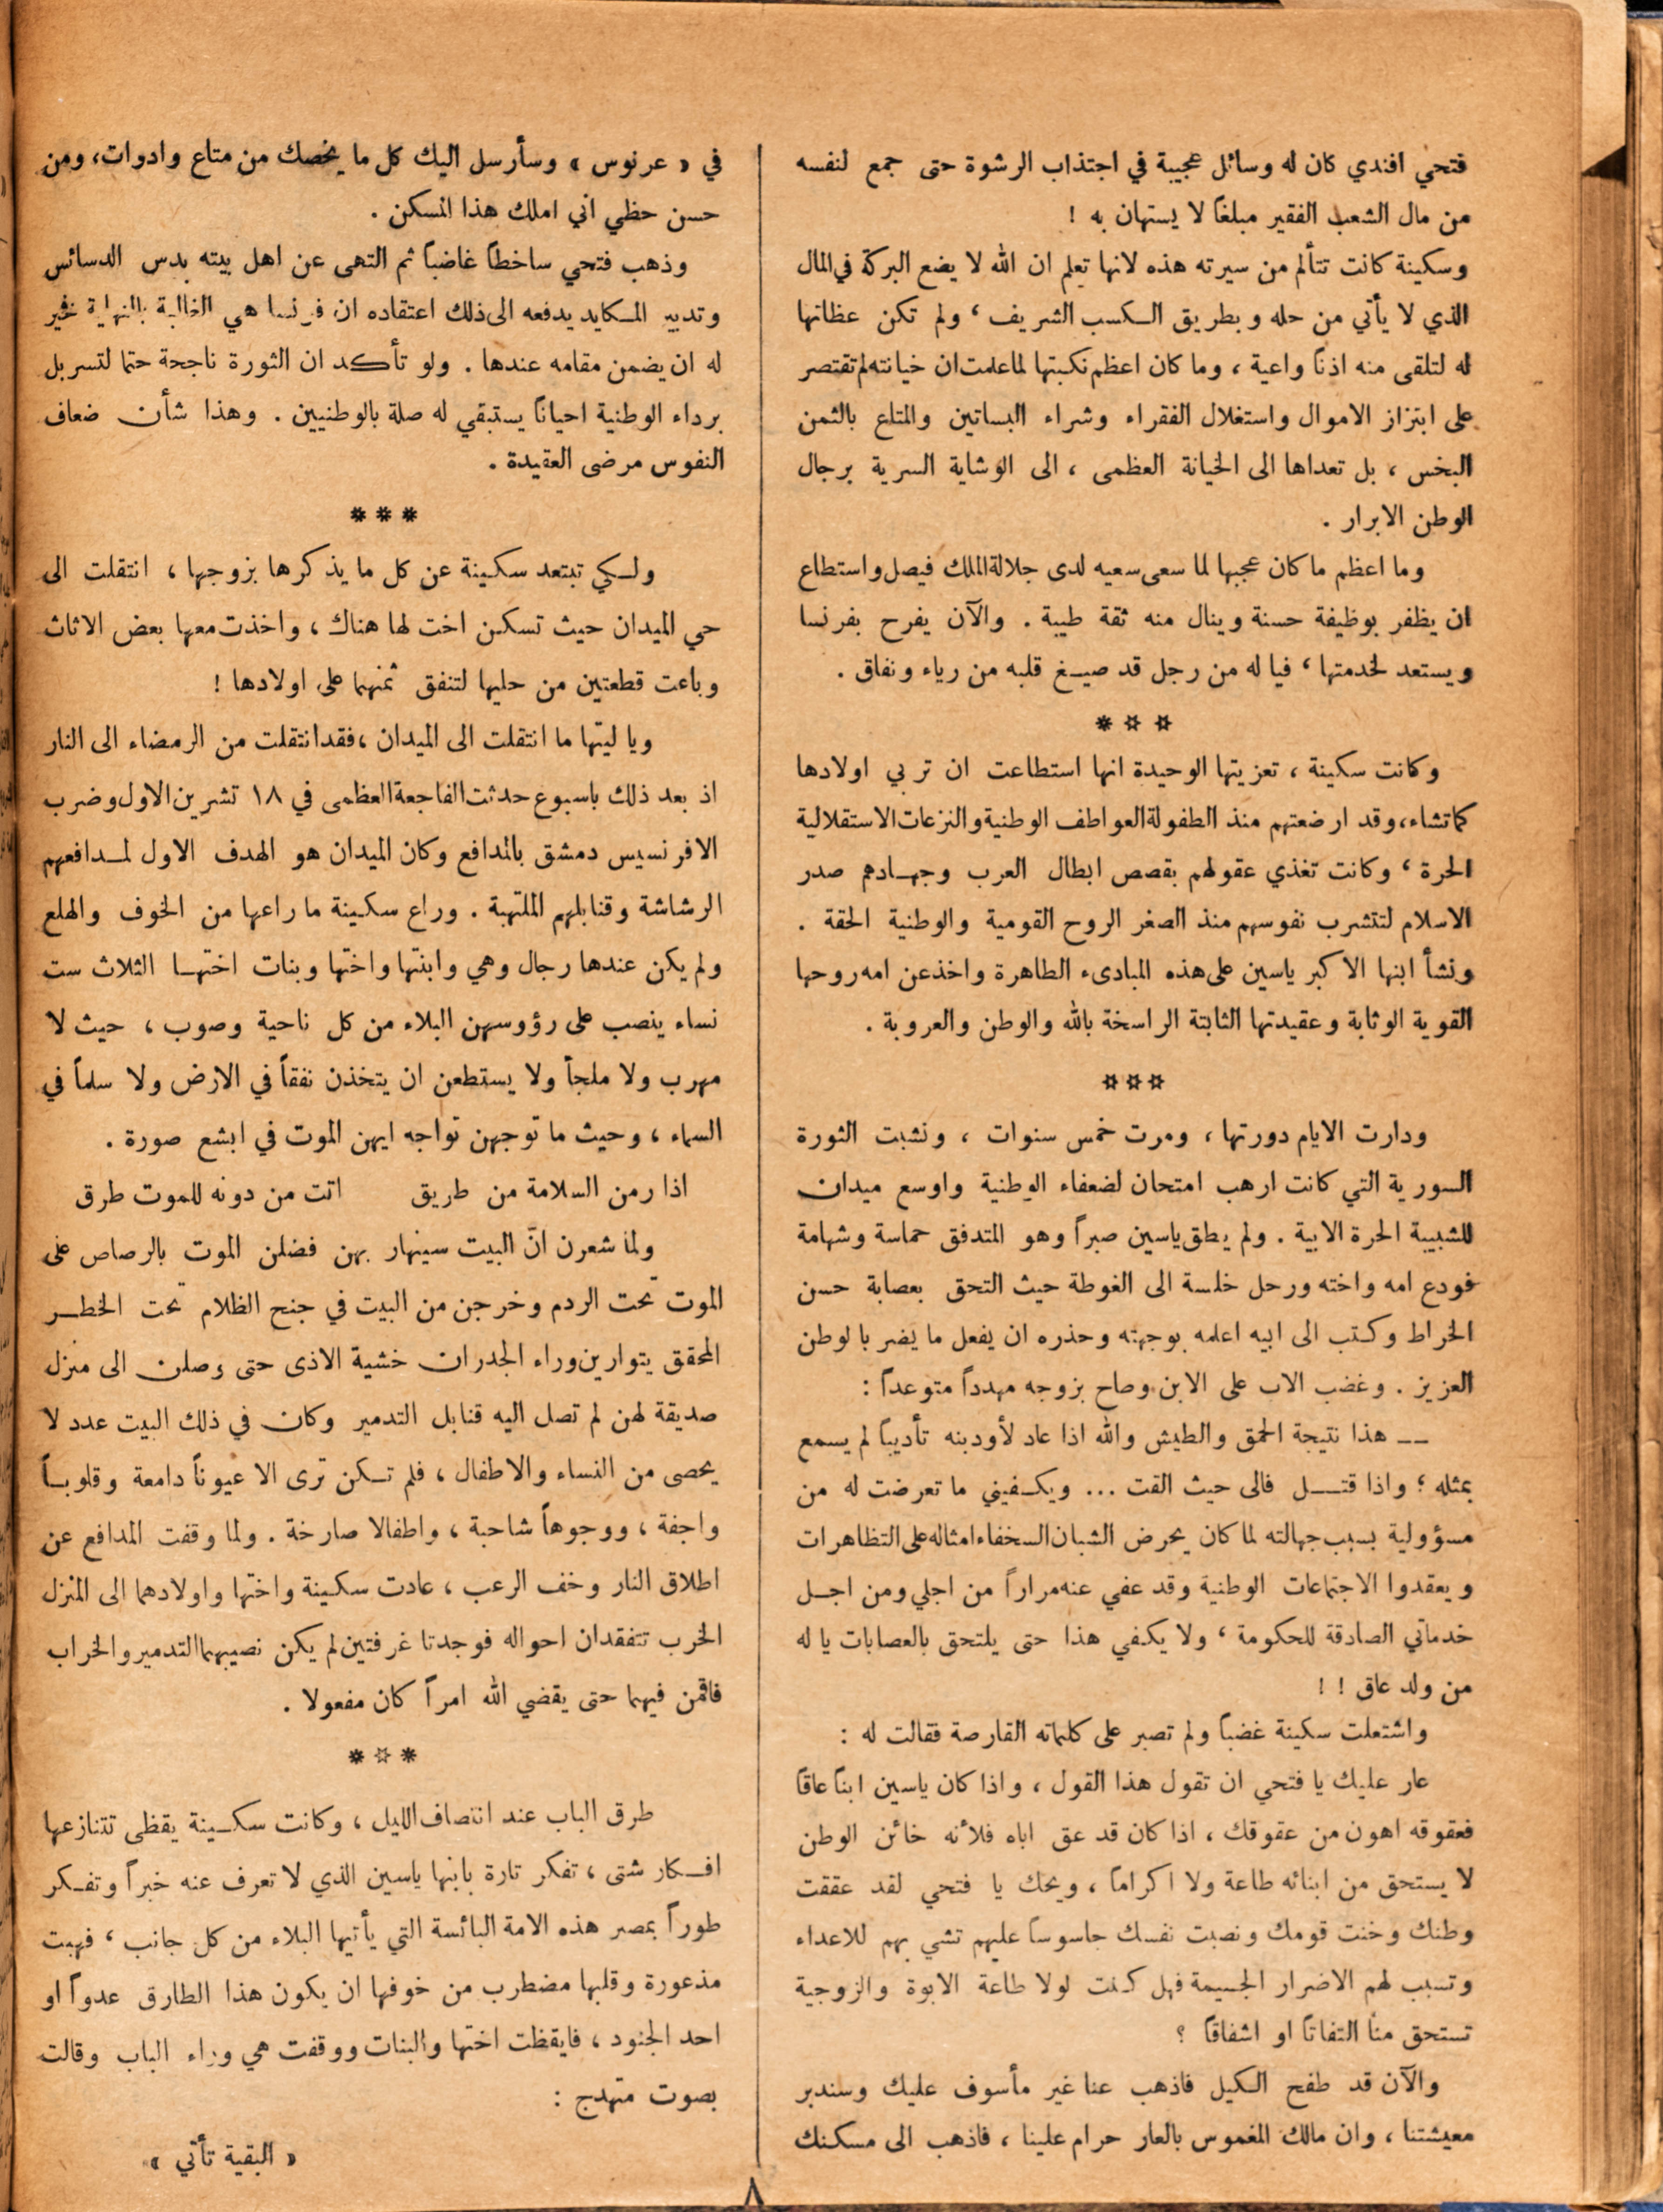 فتحي افندي كان له وسائل عجيبة في اجتذاب الرشوة حتى جمع لنفسه
من مال الشعب الفقير مبلغاً لا يستهان به !
وسكينة كانت تتألم من سيرته هذه لانها تعلم ان الله لا يضع البركة في المال
الذي لا يأتي من حله وبطريق الكسب الشريف ، ولم تكن عظاتها
له لتلقى منه اذناً واعية ، وما كان اعظم نكبتها لما علمت ان خيانته لم تقتصر
على ابتزاز الاموال واستغلال الفقراء وشراء البساتين والمتاع بالثمن
البخس ، بل تعداها الى الخيانة العظمى ، الى الوشاية السرية برجال
الوطن الابرار .
وما اعظم ما كان عجبها لما سعى سعيه لدى جلالة الملك فيصل واستطاع
ان يظفر بوظيفة حسنة وينال منه ثقة طيبة . والآن يفرح بفرنسا
ويستعد لخدمتها ، فيا له من رجل قد صيغ قلبه من رياء ونفاق .
* * *
وكانت سكينة ، تعزيتها الوحيدة انها استطاعت ان تربي اولادها
كما تشاء، وقد ارضعتهم منذ الطفولة العواطف الوطنية والنزعات الاستقلالية
الحرة ، وكانت تغذي عقولهم بقصص ابطال العرب وجهادهم صدر
الاسلام لتتشرب نفوسهم منذ الصغر الروح القومية والوطنية الحقة .
ونشأ ابنها الاكبر ياسين على هذه المبادىء الطاهرة واخذ عن امه روحها
القوية الوثابة وعقيدتها الثابتة الراسخة بالله والوطن والعروبة .
* * *
ودارت الايام دورتها ، ومرت خمس سنوات ، ونشبت الثورة
السورية التي كانت ارهب امتحان لضعفاء الوطنية واوسع ميدان
للشبيبة الحرة الابية . ولم يطق ياسين صبراً وهو المتدفق حماسة وشهامة
فودع امه واخته ورحل خلسة الى الغوطة حيث التحق بعصابة حسن
الخراط وكتب الى ابيه اعلمه بوجهته وحذره ان يفعل ما يضر بالوطن
العزيز . وغضب الاب على الابن وصاح بزوجه مهدداً متوعداً :
— هذا نتيجة الحمق والطيش والله اذا عاد لأودبنه تأديباً لم يسمع
بمثله ؛ واذا قتل فالى حيث القت ... ويكفيني ما تعرضت له من
مسؤولية بسبب جهالته لما كان يحرض الشبان السخفاء امثاله على التظاهرات
ويعقدوا الاجتماعات الوطنية وقد عفي عنه مراراً من اجلي ومن اجل
خدماتي الصادقة للحكومة ، ولا يكفي هذا حتى يلتحق بالعصابات يا له
من ولد عاق ! !
واشتعلت سكينة غضباً ولم تصبر على كلماته القارصة فقالت له :
عار عليك يا فتحي ان تقول هذا القول ، واذا كان ياسين ابناً عاقاً
فعقوقه اهون من عقوقك ، اذا كان قد عق اباه فلأنه خائن الوطن
لا يستحق من ابنائه طاعة ولا اكراماً ، ويحك يا فتحي لقد عققت
وطنك وخنت قومك ونصبت نفسك جاسوساً عليهم تشي بهم للاعداء
وتسبب لهم الاضرار الجسيمة فهل كنت لولا طاعة الابوة والزوجية
تستحق منا التفاتاً او اشفاقاً ؟
والآن قد طفح الكيل فاذهب عنا غير مأسوف عليك وسندبر
معيشتنا ، وان مالك المغموس بالعار حرام علينا ، فاذهب الى مسكنك
في « عرنوس » وسأرسل اليك كل ما يخصك من متاع وادوات، ومن
حسن حظي اني املك هذا المسكن .
وذهب فتحي ساخطاً غاضباً ثم التهى عن اهل بيته بدس الدسائس
وتدبير المكايد يدفعه الى ذلك اعتقاده ان فرنسا هي الغالبة بالنهاية فخير
له ان يضمن مقامه عندها . ولو تأكد ان الثورة ناجحة حتما لتسربل
برداء الوطنية احياناً يستبقي له صلة بالوطنيين . وهذا شأن ضعاف
النفوس مرضى العقيدة .
* * *
ولكي تبتعد سكينة عن كل ما يذكرها بزوجها ، انتقلت الى
حي الميدان حيث تسكن اخت لها هناك ، واخذت معها بعض الاثاث
وباعت قطعتين من حليها لتنفق ثمنهما على اولادها !
ويا ليتها ما انتقلت الى الميدان ، فقد انتقلت من الرمضاء الى النار
اذ بعد ذلك باسبوع حدثت الفاجعة العظمى في ١٨ تشرين الاول وضرب
الافرنسيس دمشق بالمدافع وكان الميدان هو الهدف الاول لمدافعهم
الرشاشة وقنابلهم الملتهبة . وراع سكينة ما راعها من الخوف والهلع
ولم يكن عندها رجال وهي وابنتها واختها وبنات اختها الثلاث ست
نساء ينصب على رؤوسهن البلاء من كل ناحية وصوب ، حيث لا
مهرب ولا ملجأ ولا يستطعن ان يتخذن نفقاً في الارض ولا سلماً في
السماء ، وحيث ما توجهن تواجه ايهن الموت في ابشع صورة .
اذا رمن السلامة من طريق    اتت من دونه للموت طرق
ولما شعرن انّ البيت سينهار بهن فضلن الموت بالرصاص على
الموت تحت الردم وخرجن من البيت في جنح الظلام تحت الخطر
المحقق يتوارين وراء الجدران خشية الاذى حتى وصلن الى منزل
صديقة لهن لم تصل اليه قنابل التدمير وكان في ذلك البيت عدد لا
يحصى من النساء والاطفال ، فلم تكن ترى الا عيوناً دامعة وقلوباً
واجفة ، ووجوهاً شاحبة ، واطفالا صارخة . ولما وقفت المدافع عن
اطلاق النار وخف الرعب ، عادت سكينة واختها واولادهما الى المنزل
الخرب تتفقدان احواله فوجدتا غرفتين لم يكن نصيبهما التدمير والخراب
فاقمن فيهما حتى يقضي الله امراً كان مفعولا .
* * *
طرق الباب عند انتصاف الليل ، وكانت سكينة يقظى تتنازعها
افكار شتى ، تفكر تارة بابنها ياسين الذي لا تعرف عنه خبراً وتفكر
طوراً بمصير هذه الامة البائسة التي يأتيها البلاء من كل جانب ، فهبت
مذعورة وقلبها مضطرب من خوفها ان يكون هذا الطارق عدواً او
احد الجنود ، فايقظت اختها والبنات ووقفت هي وراء الباب وقالت
بصوت متهدج :
« البقية تأتي »
٨